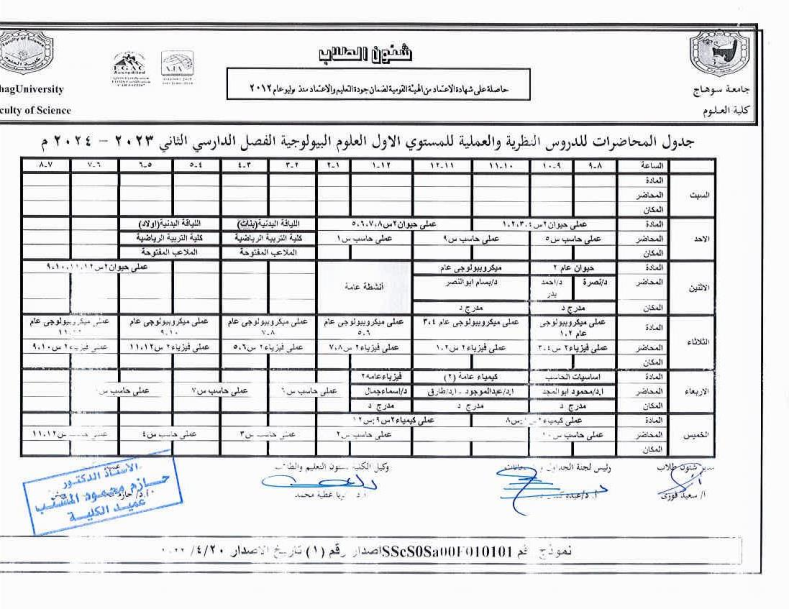 شئون الطلاب
حاصلة على شهادة الاعتماد من الهيئة القومية لضمان جودة التعليم والاعتماد منذ يوليو عام ٢٠١٢
جامعة سوهاج
كلية العلوم
hagUniversity
culty of Science
EGAC
جدول المحاضرات للدروس النظرية والعملية للمستوي الاول العلوم البيولوجية الفصل الدارسي الثاني ٢٠٢٣ – ٢٠٢٤ م
الساعة ٨-٩ ٩-١٠ ١٠-١١ ١١-١٢ ١٢-١ ١-٢ ٢-٣ ٣-٤ ٤-٥ ٥-٦ ٦-٧ ٧-٨
السبت
المادة
المحاضر
المكان
الاحد
المادة عملي حيوان ٢ س١،٢،٣،٤ عملي حيوان ٢ س٥،٦،٧،٨ اللياقة البدنية(بنات) اللياقة البدنية(اولاد)
المحاضر عملي حاسب س٥ عملي حاسب س٩ عملي حاسب س١ كلية التربية الرياضية كلية التربية الرياضية
المكان الملاعب المفتوحة الملاعب المفتوحة
الاثنين
المادة حيوان عام ٢ ميكروبيولوجي عام أنشطة عامة عملي حيوان ٢ س٩،١٠،١١،١٢
المحاضر د/نصرة د/احمد بدر د/بسام ابوالنصر
المكان مدرج د مدرج د
الثلاثاء
المادة عملي ميكروبيولوجي عام ١،٢ عملي ميكروبيولوجي عام ٣،٤ عملي ميكروبيولوجي عام ٥،٦ عملي ميكروبيولوجي عام ٧،٨ عملي ميكروبيولوجي عام ٩،١٠ عملي ميكروبيولوجي عام
المحاضر عملي فيزياء ٢ س٣،٤ عملي فيزياء ٢ س١،٢ عملي فيزياء ٢ س٧،٨ عملي فيزياء ٢ س٥،٦ عملي فيزياء ٢ س١١،١٢ عملي فيزياء ٢ س٩،١٠
المكان
الاربعاء
المادة اساسيات الحاسب كيمياء عامة (٢) فيزياء عامة ٢
المحاضر ا.د/محمود ابوالمجد ا.د/عبدالموجود - ا.د/طارق د/اسماء جمال عملي حاسب س٦ عملي حاسب س٧ عملي حاسب س
المكان مدرج د مدرج د مدرج د
الخميس
المادة عملي كيمياء س٨ عملي كيمياء ٢ س٩،س١٢
المحاضر عملي حاسب س١٠ عملي حاسب س٢ عملي حاسب س٣ عملي حاسب س٤ عملي حاسب س١١،١٢
المكان
مدير شئون طلاب
ا/ سعيد فوزى
رئيس لجنة الجداول
ا.د/عبده
وكيل الكلية لشئون التعليم والطلاب
عطية محمد
الأستاذ الدكتور
حازم محمود المنسب
عميد الكلية
نموذج رقم SScS0Sa00F010101 اصدار رقم (١) تاريخ الاصدار ٤/٢٠/